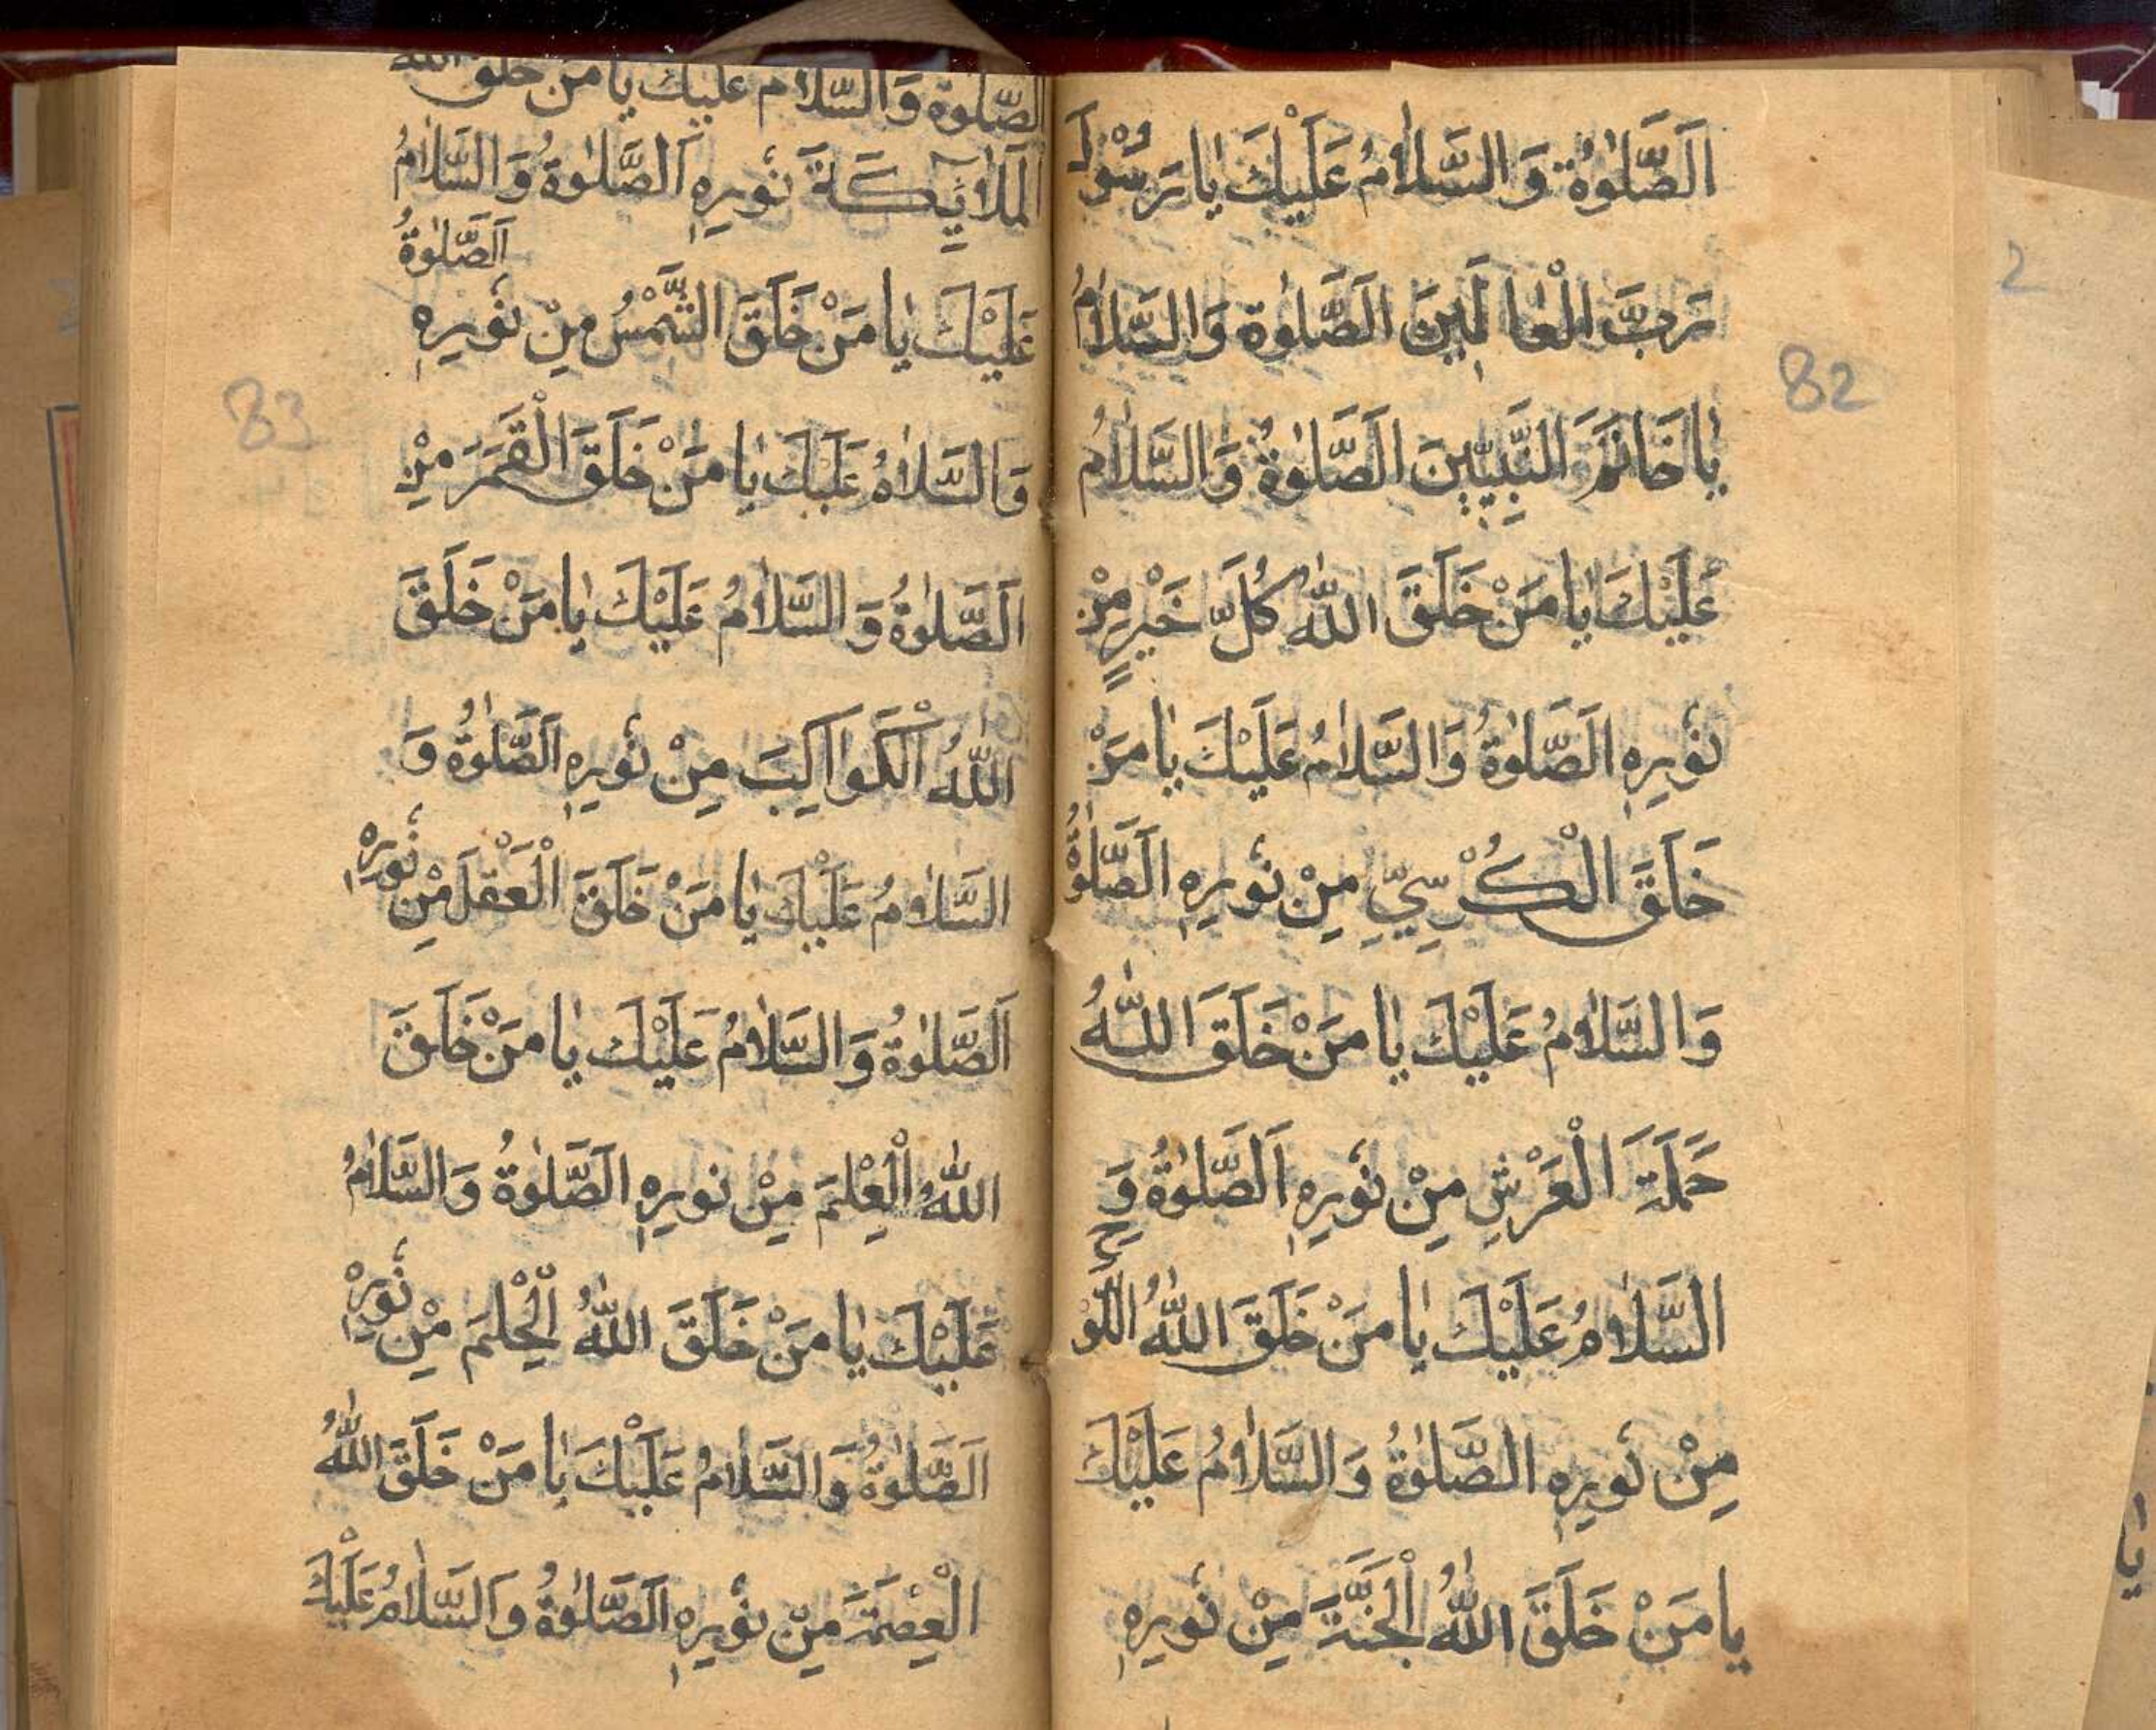 اَلصَّلٰوةُ وَالسَّلاٰمُ عَلَيْكَ يٰا رَسُوْلَ
رَبَّ الْعٰالَمِينَ الصَّلٰوة وَالسَّلاٰمُ
يٰا خَاتَمَ النَّبِيّيٖنَ اَلصَّلٰوةُ وَالسَّلاٰمُ
عَلَيْكَ يٰا مَنْ خَلَقَ اللّٰهُ كُلَّ خَيْرٍ مِنْ
نُورِهِ اَلصَّلٰوةُ وَالسَّلاٰمُ عَلَيْكَ يٰا مَنْ
خَلَقَ الْكُرْسِيِّ مِنْ نُورِهِ اَلصَّلٰوةُ
وَالسَّلاٰمُ عَلَيْكَ يٰا مَنْ خَلَقَ اللّٰهُ
حَمَلَةَ الْعَرْشِ مِنْ نُورِهِ اَلصَّلٰوةُ وَ
السَّلاٰمُ عَلَيْكَ يٰا مَنْ خَلَقَ اللّٰهُ اللَّوْحَ
مِنْ نُورِهِ الصَّلٰوةُ وَالسَّلاٰمُ عَلَيْكَ
يا مَنْ خَلَقَ اللّٰهُ الْجَنَّةَ مِنْ نُورِهِ
82
الصَّلٰوة وَالسَّلام عَلَيْكَ يا مَنْ خَلَقَ الله
الْمَلاٰئِكَةَ نُورِهِ اَلصَّلٰوةُ وَالسَّلاٰمُ
عَلَيْكَ يٰا مَنْ خَلَقَ الشَّمْسُ مِنْ نُورِهِ اَلصَّلٰوةُ
وَالسَّلاٰمُ عَلَيْكَ يٰا مَنْ خَلَقَ الْقَمَرَ مِنْ
اَلصَّلٰوةُ وَالسَّلاٰمُ عَلَيْكَ يٰا مَنْ خَلَقَ
اللّٰهُ الْكَوَاكِبَ مِنْ نُورِهِ اَلصَّلٰوةُ وَ
السَّلاٰمُ عَلَيْكَ يٰا مَنْ خَلَقَ الْعَقْلَ مِنْ نُورِهِ
اَلصَّلٰوةُ وَالسَّلاٰمُ عَلَيْكَ يٰا مَنْ خَلَقَ
اللّٰهُ الْعِلْمَ مِنْ نورِهِ اَلصَّلٰوةُ وَالسَّلاٰمُ
عَلَيْكَ يٰا مَنْ خَلَقَ اللّٰهُ الْحِلْمَ مِنْ نُورِهِ
اَلصَّلٰوةُ وَالسَّلاٰمُ عَلَيْكَ يٰا مَنْ خَلَقَ اللّٰهُ
الْعِصْمَةَ مِنْ نُورِهِ اَلصَّلٰوةُ وَالسَّلاٰمُ عَلَيْكَ
83